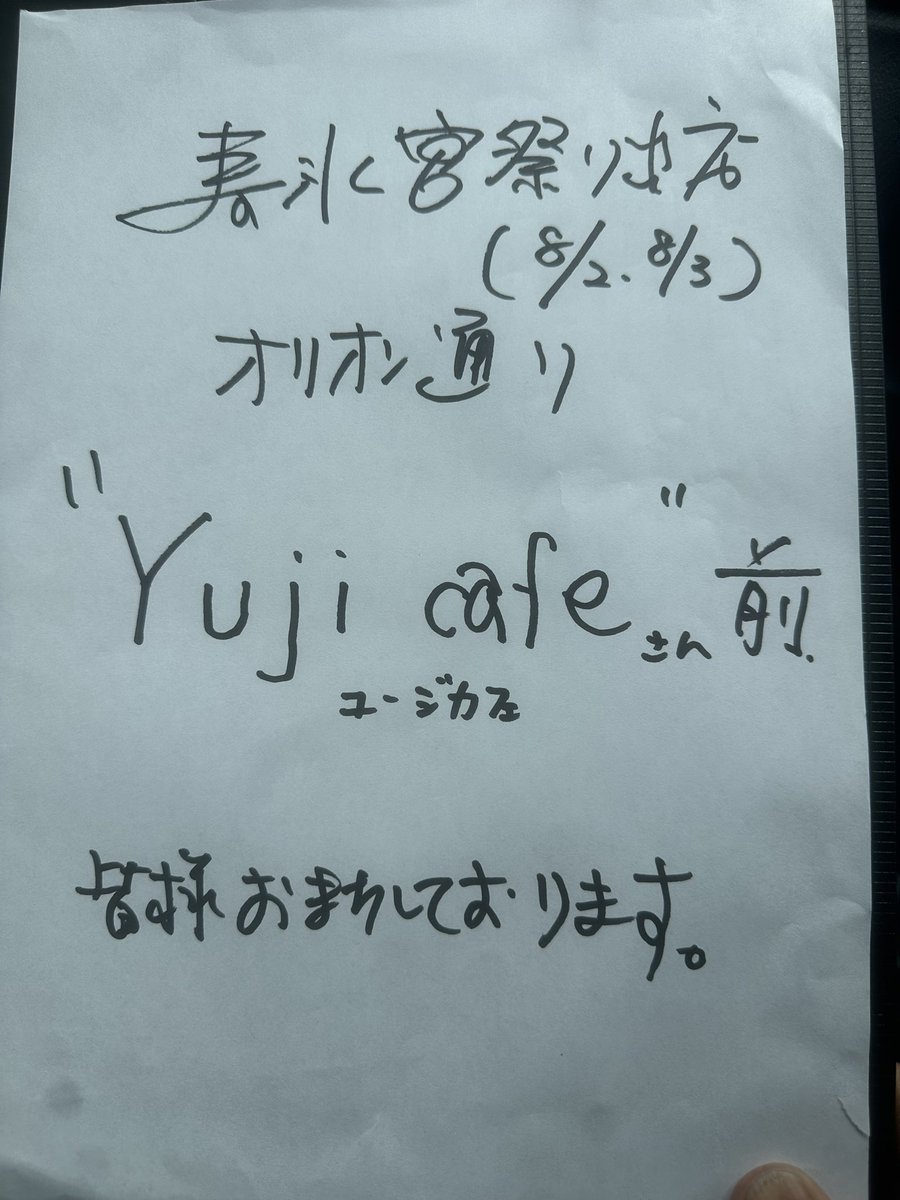 宮祭り出店
(8/2. 8/3)
オリオン通り
"Yuji cafe"さん前.
ユージカフェ
皆様おまちしております。